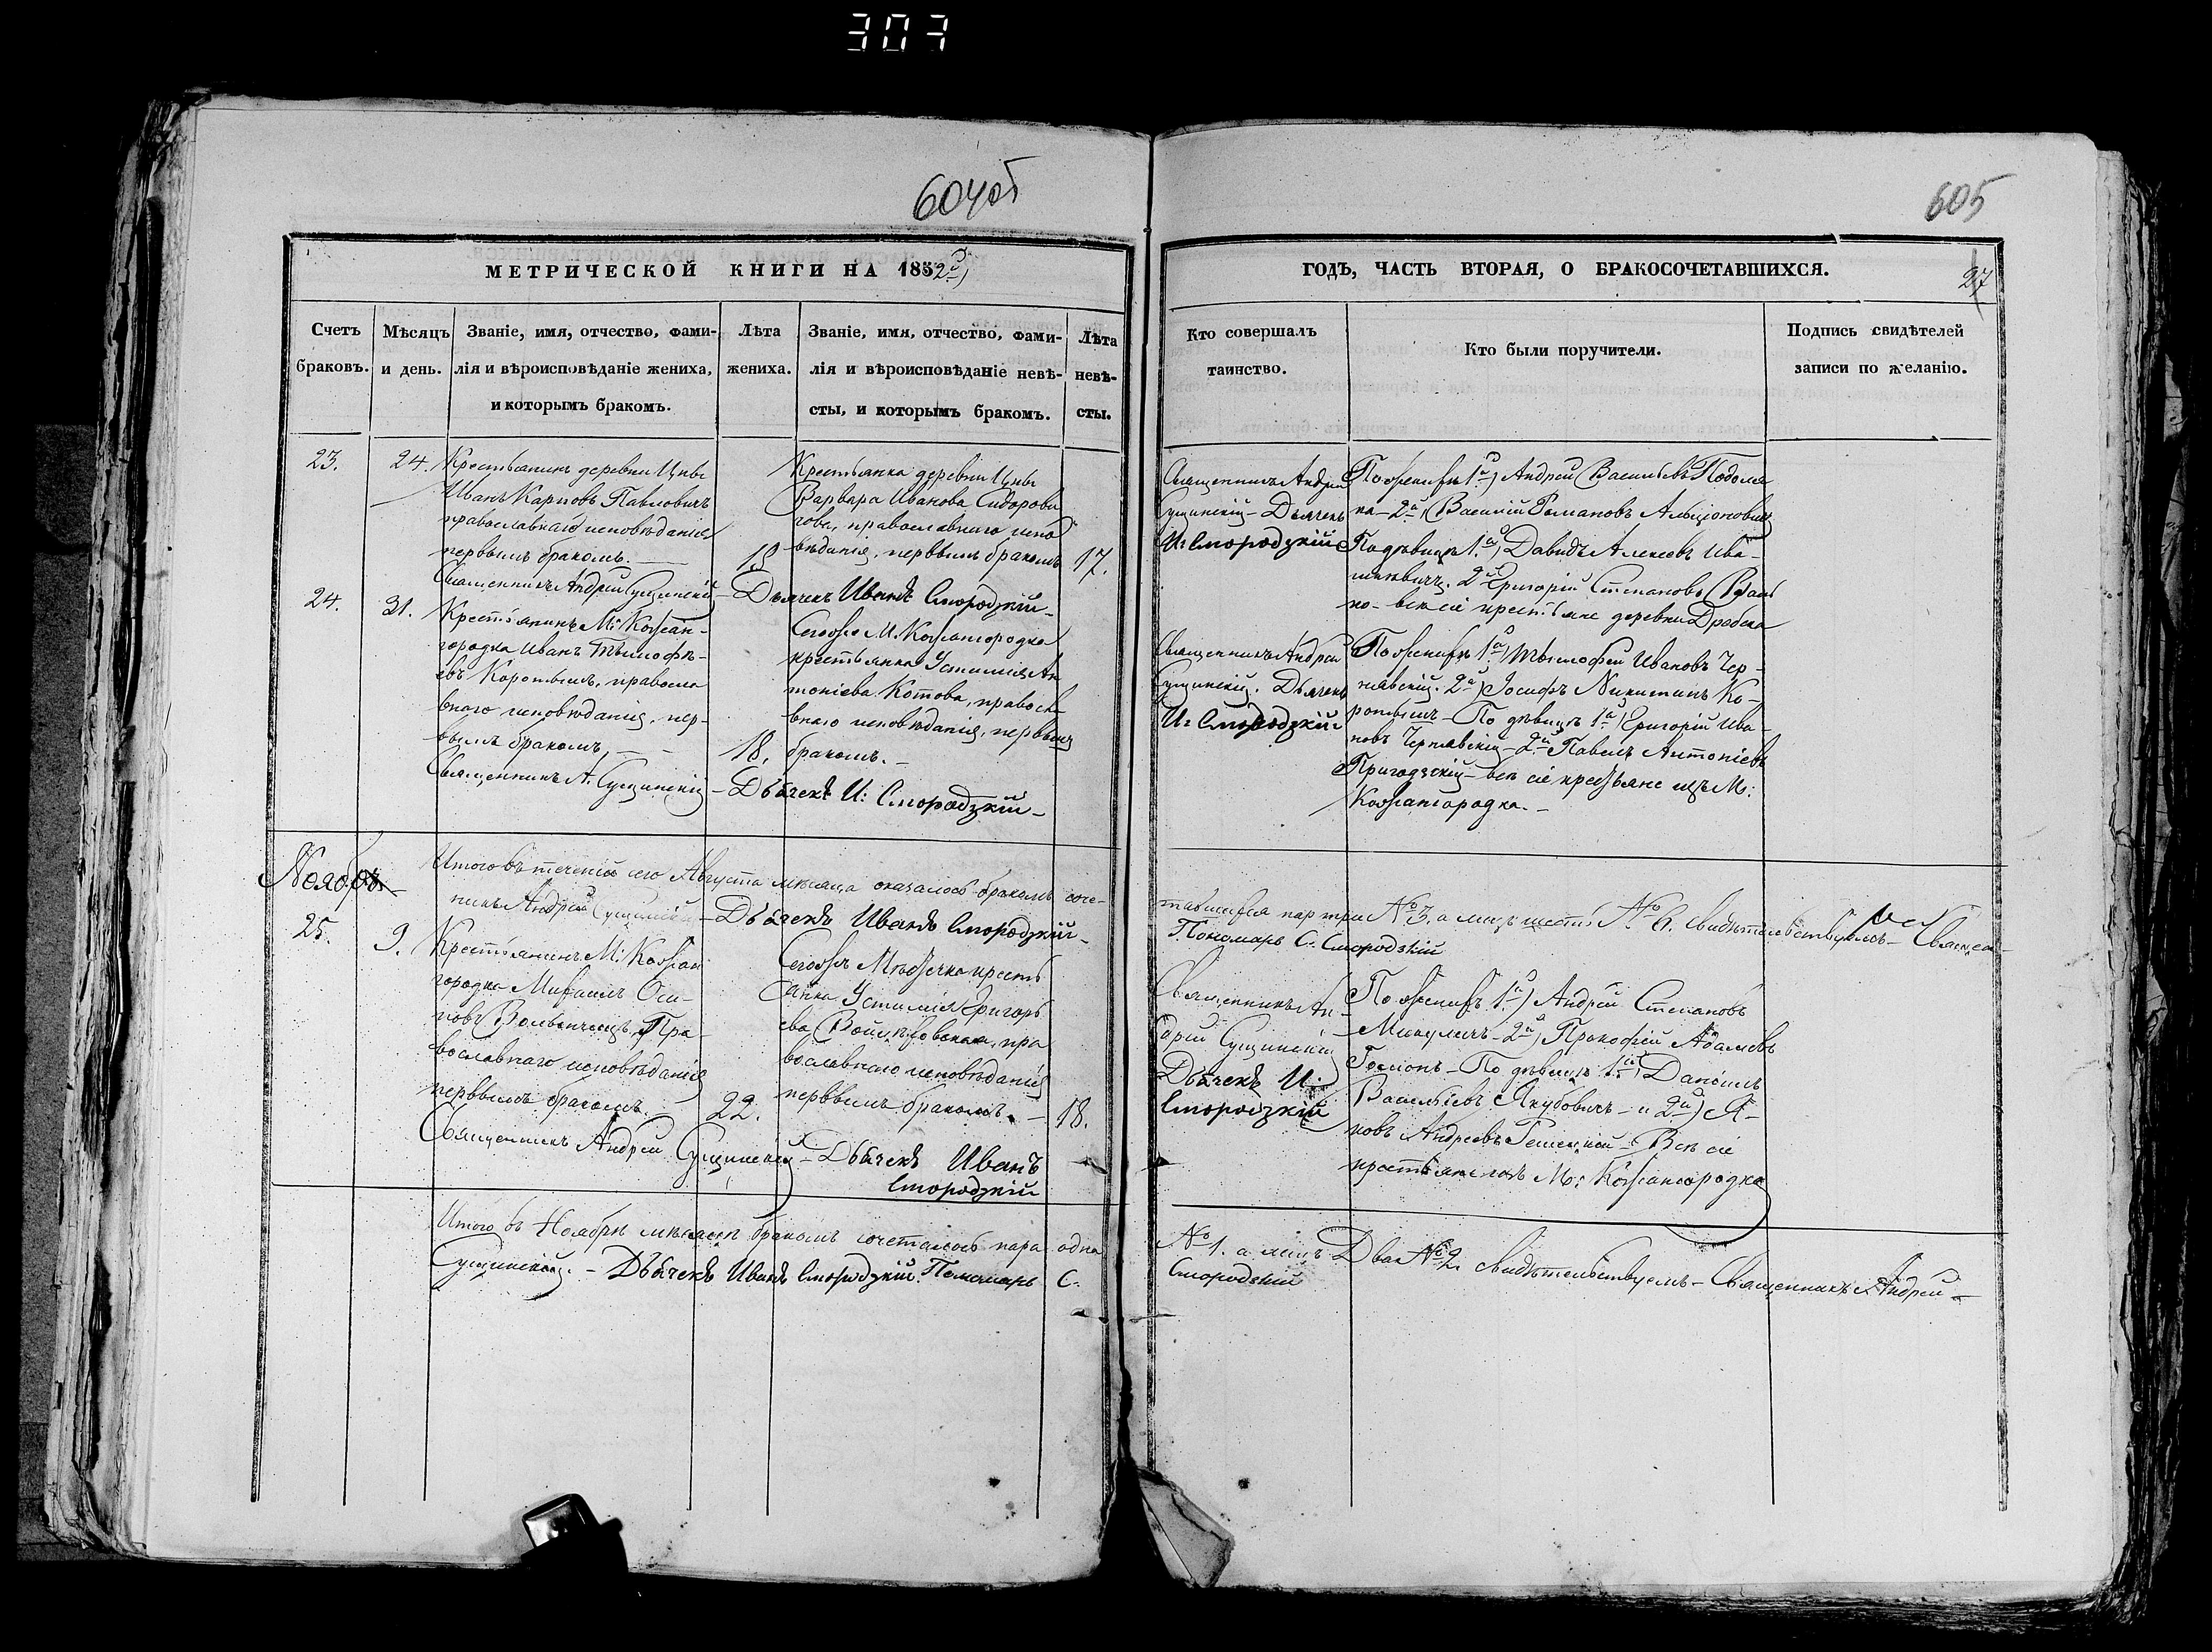 303
604об
605
МЕТРИЧЕСКОЙ КНИГИ НА 1852й
ГОДЪ, ЧАСТЬ ВТОРАЯ, О БРАКОСОЧЕТАВШИХСЯ.
27
Счетъ
браковъ.
Мѣсяцъ
и день.
Званіе, имя, отчество, фами-
лія и вѣроисповѣданіе жениха,
и которымъ бракомъ.
Лѣта
жениха.
Званіе, имя, отчество, фами-
лія и вѣроисповѣданіе невѣ-
сты, и которымъ бракомъ.
Лѣта
невѣ-
сты.
Кто совершалъ
таинство.
Кто были поручители.
Подпись свидѣтелей
записи по желанію.
23.
24.
Крестьянинъ деревни Цны
Иванъ Карповъ Павловичъ
православнаго исповѣданія
первымъ бракомъ.
19
Крестьянка деревни Цны
Варвара Иванова Сидорови
чова, православнаго испо
вѣданія, первымъ бракомъ
17.
Священникъ Андрей Сущинскій - Дьячекъ Иванъ Смородзкій -
Священникъ Андрей
Сущинскій - Дьячекъ
И: Смородзкій
По женихѣ 1й) Андрей Васильевъ Подоля
ка - 2й) Василій Романовъ
По дѣвицѣ 1й) Давидъ Алексѣевъ Ива-
шкевичъ. 2й Григорій Степановъ
ко - всѣ сіе крестьяне деревни Дребска
24.
31.
Крестьянинъ М: Кожан-
городка Иванъ Тымофѣ-
евъ Коротышъ, правосла
внаго исповѣданія, пер-
вымъ бракомъ,
18.
Сегожъ М. Кожангородка
крестьянка Устинія Ан
тоніева Котова, правосла
внаго исповѣданія, первымъ
бракомъ. -
Священникъ А. Сущинскій - Дьячекъ И: Смородзкій -
Священникъ Андрей
Сущинскій. Дьячекъ
И: Смородзкій
По женихѣ 1й) Тымофей Ивановъ Чер-
нявскій. 2й) Іосифъ Никитинъ Ко-
ротышъ - По дѣвицѣ 1й) Григорій Ива-
новъ Чернявскій - 2й Павелъ Антоніевъ
Пригодзскій - всѣ сіе крестьяне изъ М:
Кожангородка. -
Итого въ теченіи сего Августа мѣсяца оказалось бракомъ соче-
тавшихся пар три № 3, а лицъ шесть № 6. Свидѣтельствуемъ - Священ-
никъ Андрей Сущинскій - Дьячекъ Иванъ Смородзкій -
Пономарь С. Смородзкій
Ноябрь
25.
9.
Крестьянинъ М: Кожан
городка Михаилъ Оси-
повъ Пра-
вославнаго исповѣданія
первымъ бракомъ.
22.
Сегожъ Мѣстечка кресть
янка Устинія Григорь
ева пра
вославнаго исповѣданія
первымъ бракомъ. -
18.
Священникъ Андрей Сущинскій - Дьячекъ Иванъ
Смородзкій
Священникъ Ан-
дрей Сущинскій
Дьячекъ И:
Смородзкій
По женихѣ 1й) Андрей Степановъ
Микуличъ - 2й) Прокофій Адамовъ
По дѣвицѣ 1й) Даніилъ
Васильевъ Якубовичъ - и 2й) Я-
новъ Андреевъ Всѣ сіе
крестьяне изъ М: Кожангородка
Итого въ Ноябрѣ мѣсяцѣ бракомъ сочеталось пара одна
№ 1. а лицъ Два № 2. свидѣтельствуемъ - Священникъ Андрей -
Сущинскій. - Дьячекъ Иванъ Смородзкій. Пономарь С.
Смородзкій